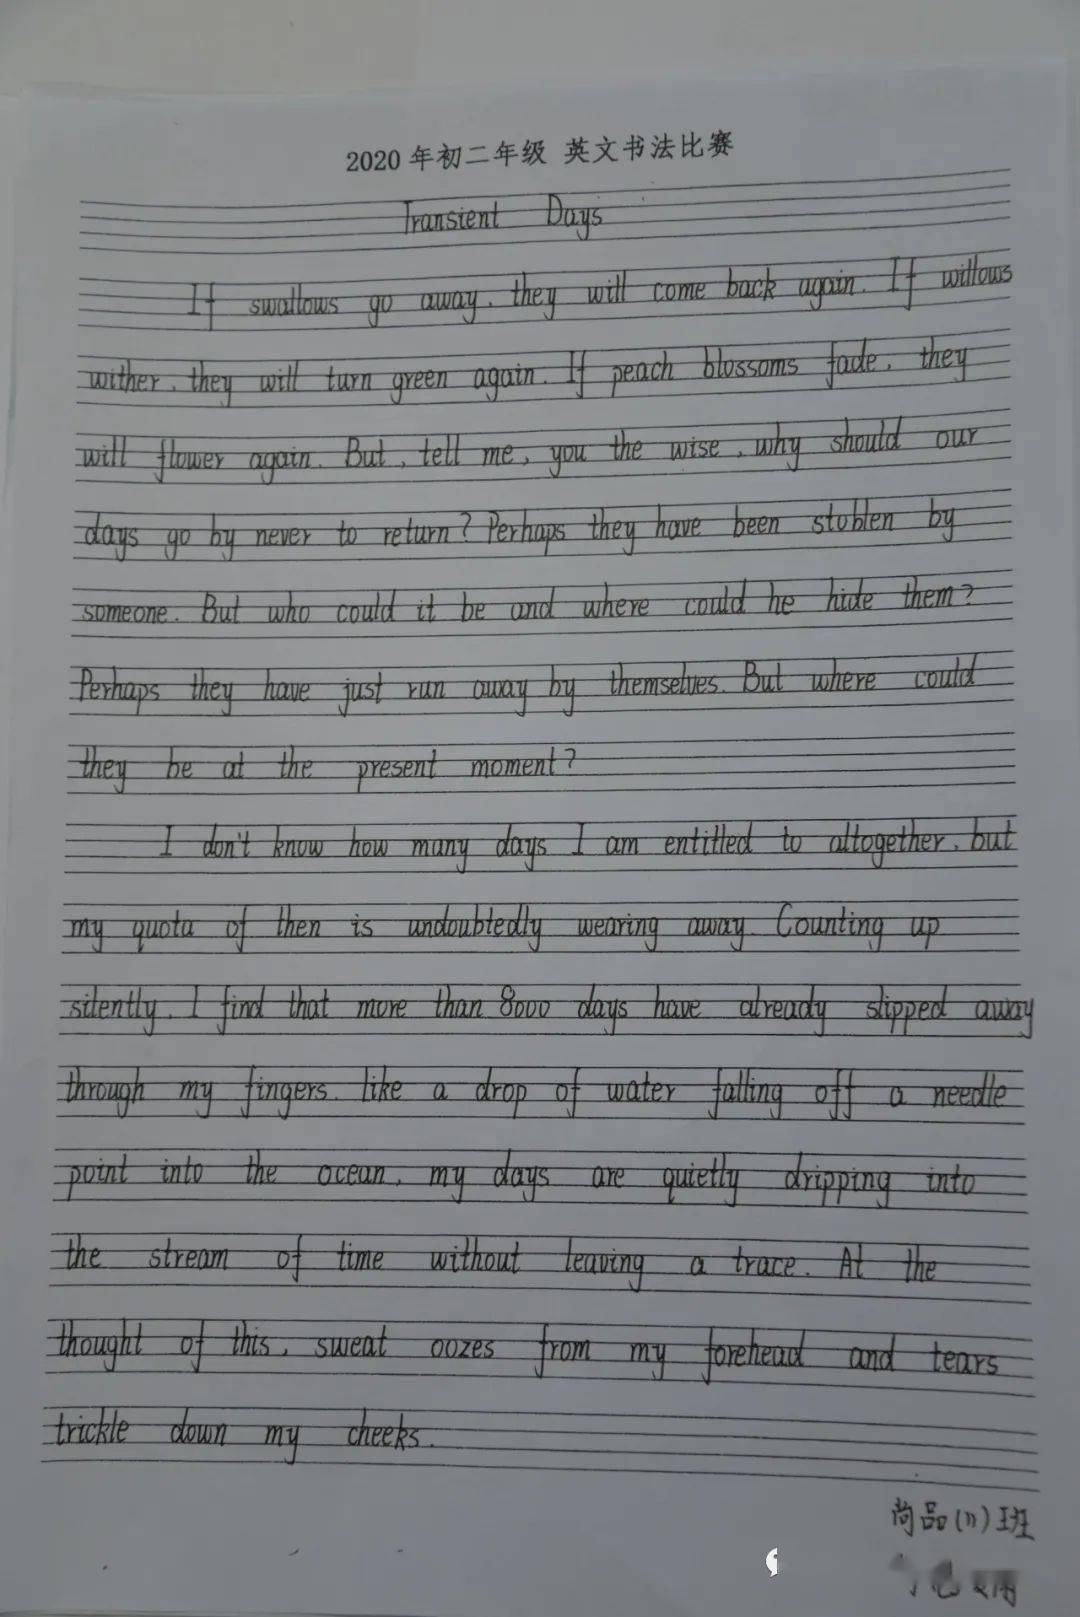 2020年初二年级 英文书法比赛
Transient Days
If swallows go away, they will come back again. If willows
wither, they will turn green again. If peach blossoms fade, they
will flower again. But, tell me, you the wise, why should our
days go by never to return? Perhaps they have been stoblen by
someone. But who could it be and where could he hide them?
Perhaps they have just run away by themselves. But where could
they be at the present moment?
I don't know how many days I am entitled to altogether, but
my quota of then is undoubtedly wearing away. Counting up
silently, I find that more than 8000 days have already slipped away
through my fingers. like a drop of water falling off a needle
point into the ocean, my days are quietly dripping into
the stream of time without leaving a trace. At the
thought of this, sweat oozes from my forehead and tears
trickle down my cheeks.
尚品(11)班